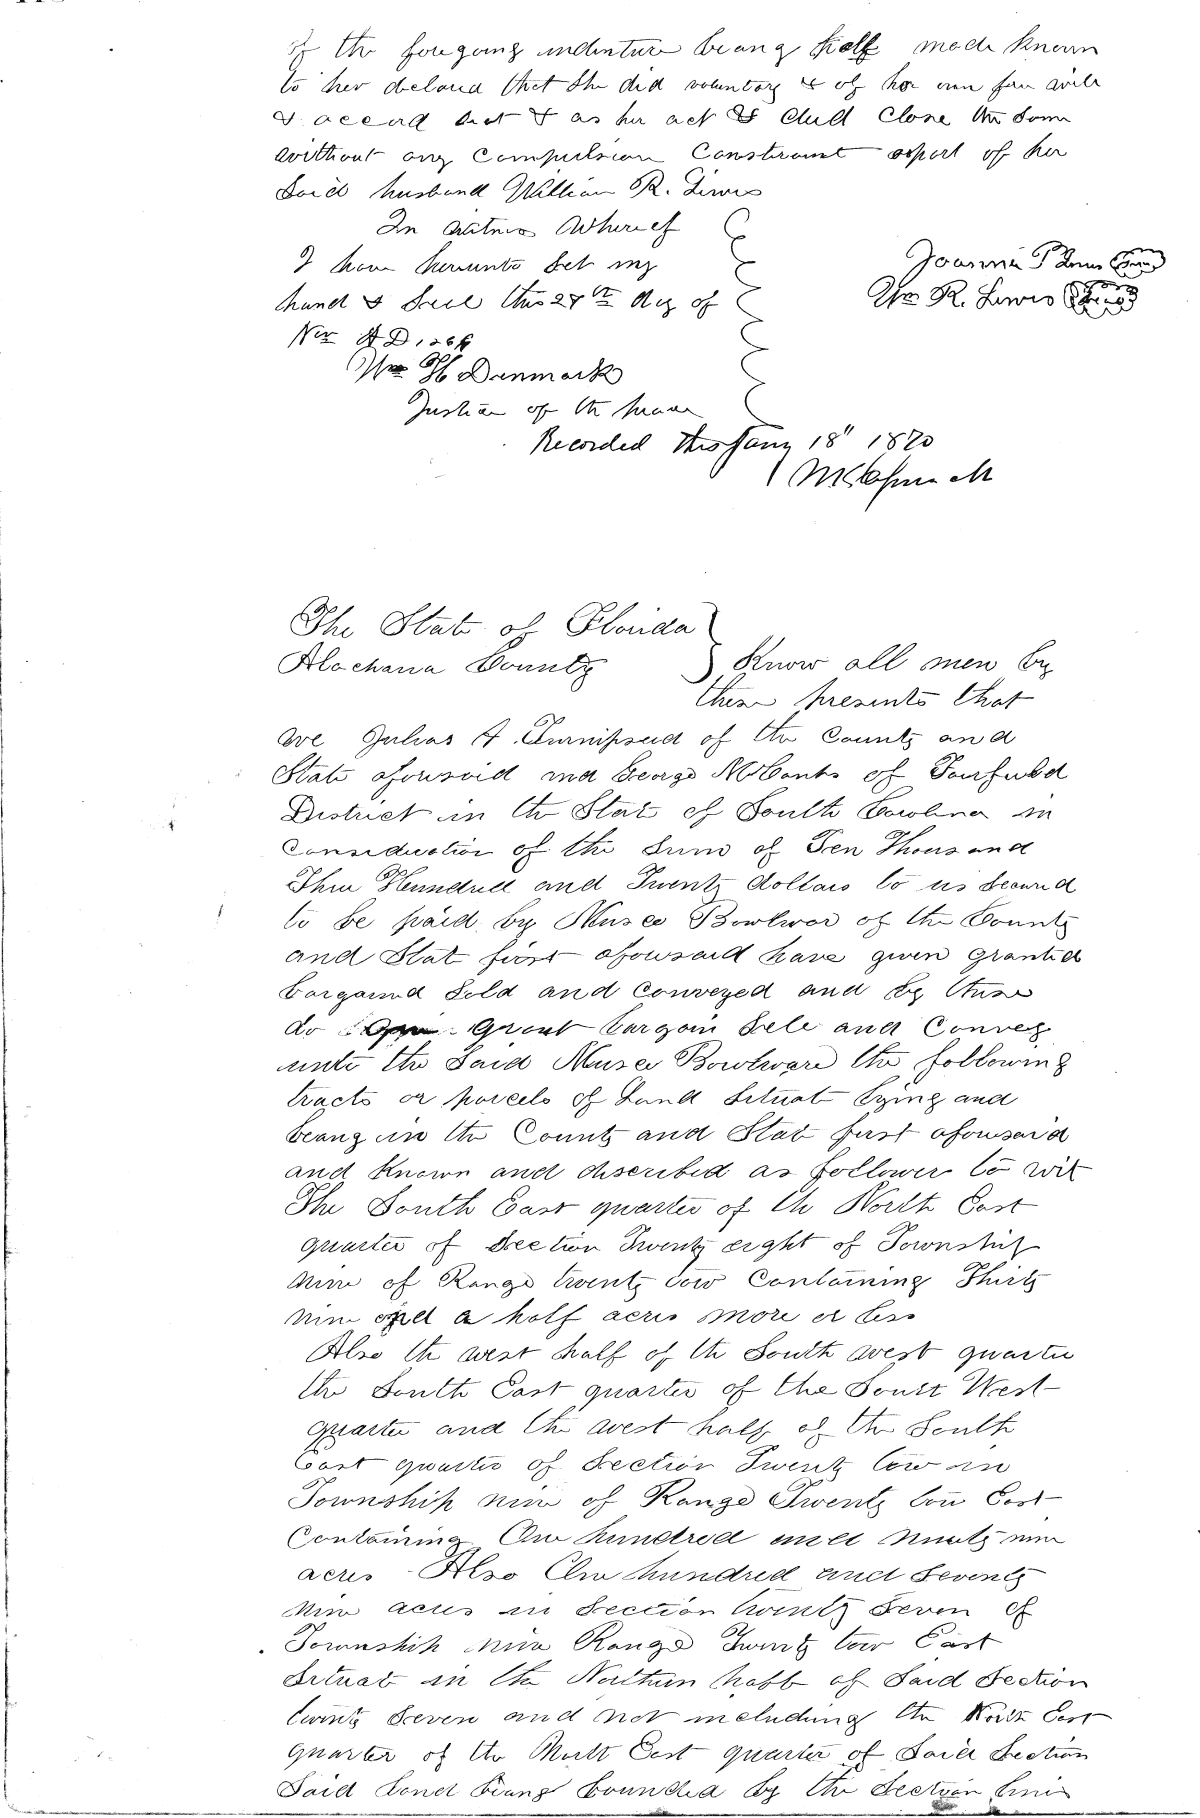 of the foregoing indenture beang half made known
to her declared that she did voluntary & of her own free will
& accord act & as her act & did close the Same
without any Compulsion Constraint or part of her
Said husband William R. Lewis
In witness Whereof
I have hereunto Set my
hand & Seal this 27th day of
Nov A D. 1869
Wm H Denmark
Justice of the peace
Joanna Lewis (Seal)
Wm R. Lewis (Seal)
Recorded this Jany 18" 1870
The State of Florida
Alachana County
Know all men by
these presents that
we Julias A. Turnipseed of the County and
State aforesaid and George McCants of Fairfield
District in the State of South Carolina in
Consideration of the Sum of Ten Thousand
Three Hundred and Twenty dollars to us Secured
to be paid by Musco Bowlwar of the County
and Stat first aforesaid have given granted
bargained Sold and Conveyed and by these
do Grant bargain Sele and Convey
unto the Said Musco Bowlware the following
tracts or parcels of Land Situat lying and
beang in the County and Stat first aforesaid
and Known and discribed as follower to wit
The South East quarter of th North East
quarter of Section Twenty eight of Township
nine of Range twenty tow Containing Thirty
nine and a half acres more or less
Also th west half of th South west quarter
the South East quarter of the South West
quarter and the west half of the South
East quarter of Section Twenty tow in
Township nine of Range Twenty tow East
Containing One hundred and Ninety nine
acres Also One hundred and Seventy
nine acres in Section twenty Seven of
Township nine Range Twenty tow East
Situat in the Nothern half of Said Section
twenty Seven and not including the North East
quarter of the North East quarter of Said Section
Said Land beang bounded by the Section line